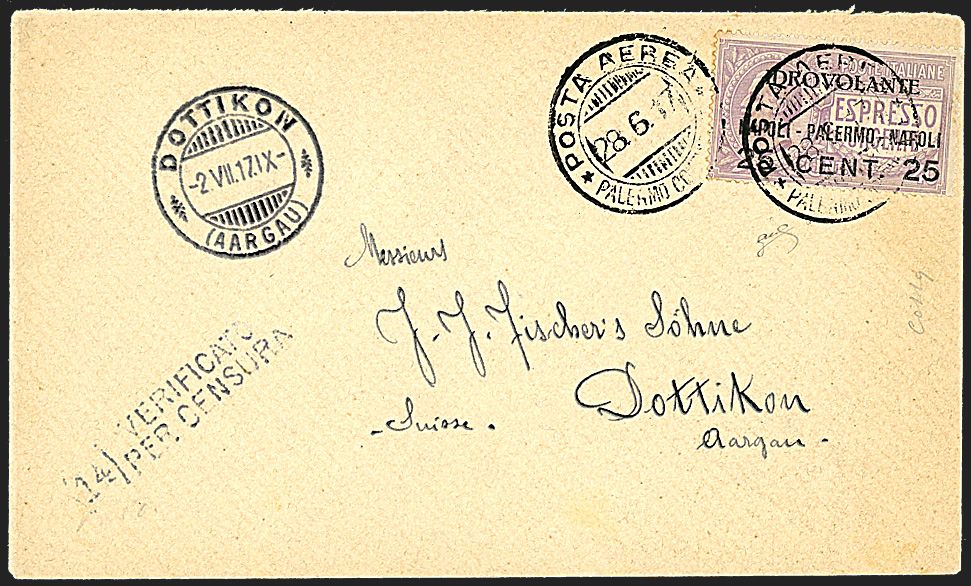 POSTA AEREA
28.6.17
PALERMO
POSTE ITALIANE
DROVOLANTE
ESPRESSO
NAPOLI - PALERMO - NAPOLI
CENT. 25
POSTA AEREA
28
PALERMO
DOTTIKON
-2.VII.17.IX-
(AARGAU)
Messieurs
J. J. Fischer's Söhne
Dottikon
- Suisse.
Aargau -
(14) VERIFICATO
PER CENSURA